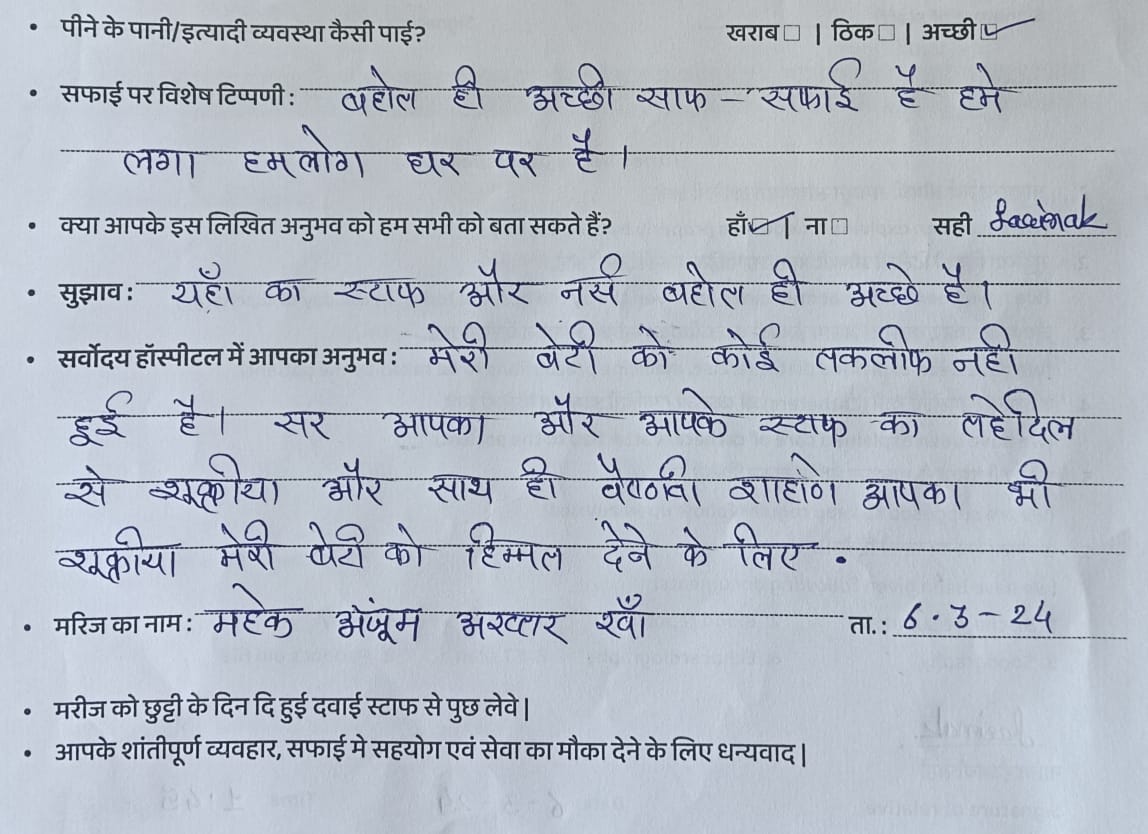 • पीने के पानी/इत्यादी व्यवस्था कैसी पाई? खराब□ | ठिक□ | अच्छी☑
• सफाई पर विशेष टिप्पणी: वहोत ही अच्छी साफ सफाई है हमे
लगा हम लोग घर पर है।
• क्या आपके इस लिखित अनुभव को हम सभी को बता सकते हैं? हाँ☑ | ना□ सही
• सुझाव: यँहा का स्टाफ और नर्स वहोत ही अच्छे है।
• सर्वोदय हॉस्पीटल में आपका अनुभव: मेरी वेटी को कोई तकलीफ नही
हुई है। सर आपका और आपके स्टाफ का तहेदिल
से शुक्रीया और साथ ही वैष्णवी आपका भी
शुक्रीया मेरी वेटी को हिम्मत देने के लिए .
• मरिज का नाम: महेक अंजूम अख्तार खाँ ता.: 6.3-24
• मरीज को छुट्टी के दिन दि हुई दवाई स्टाफ से पुछ लेवे|
• आपके शांतीपूर्ण व्यवहार, सफाई मे सहयोग एवं सेवा का मौका देने के लिए धन्यवाद|